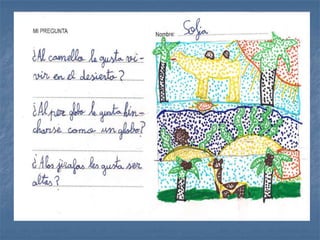 MI PREGUNTA
Nombre: Sofía
¿Al camello le gusta vi-
vir en el desierto?
¿Al pez globo le gusta hin-
charse como un globo?
¿A las jirafas les gusta ser
altas?